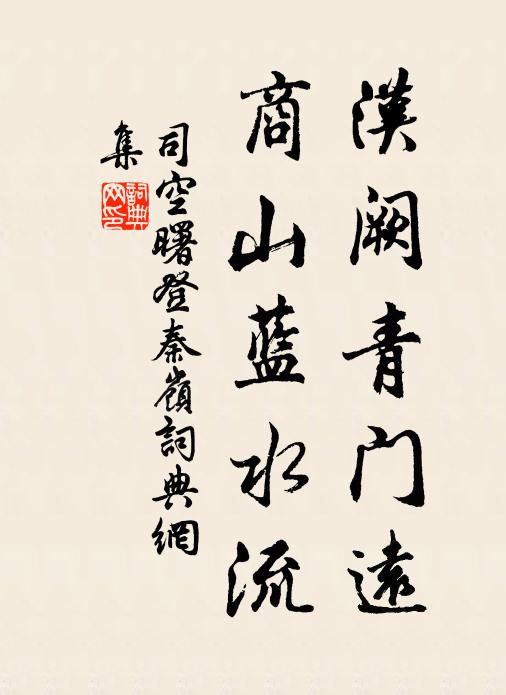 漢闕青门遠
商山藍水流
司空曙登秦嶺詞典網
集
詞典
网印